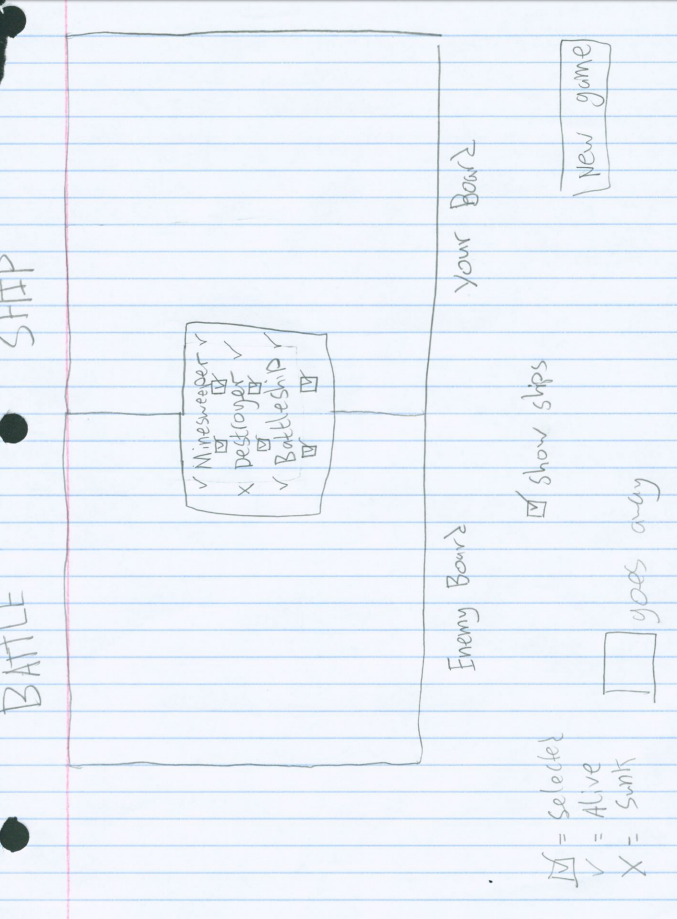 BATTLE SHIP
✓ Minesweeper ✓
☑ ☑
X Destroyer ✓
☑ ☑
✓ Battleship ✓
☑ ☑
Enemy Board Your Board
☑ show ships
New game
☑ = Selected
✓ = Alive
X = Sunk
☐ goes away